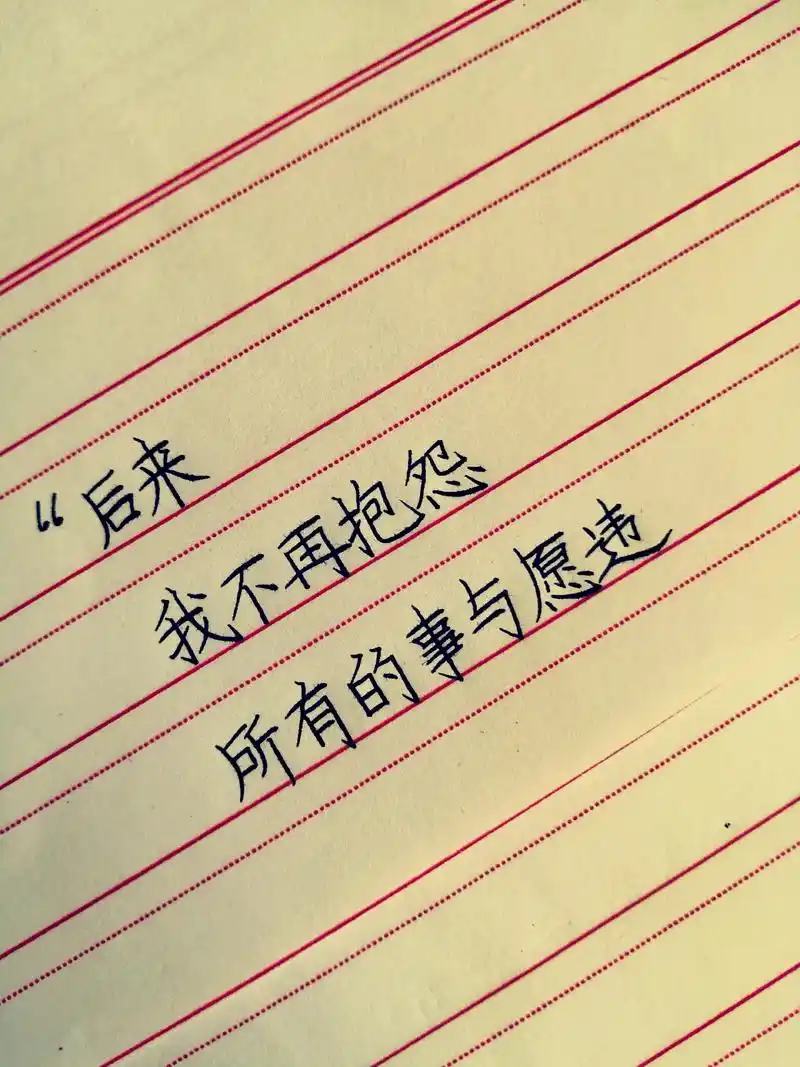 “后来
我不再抱怨
所有的事与愿违